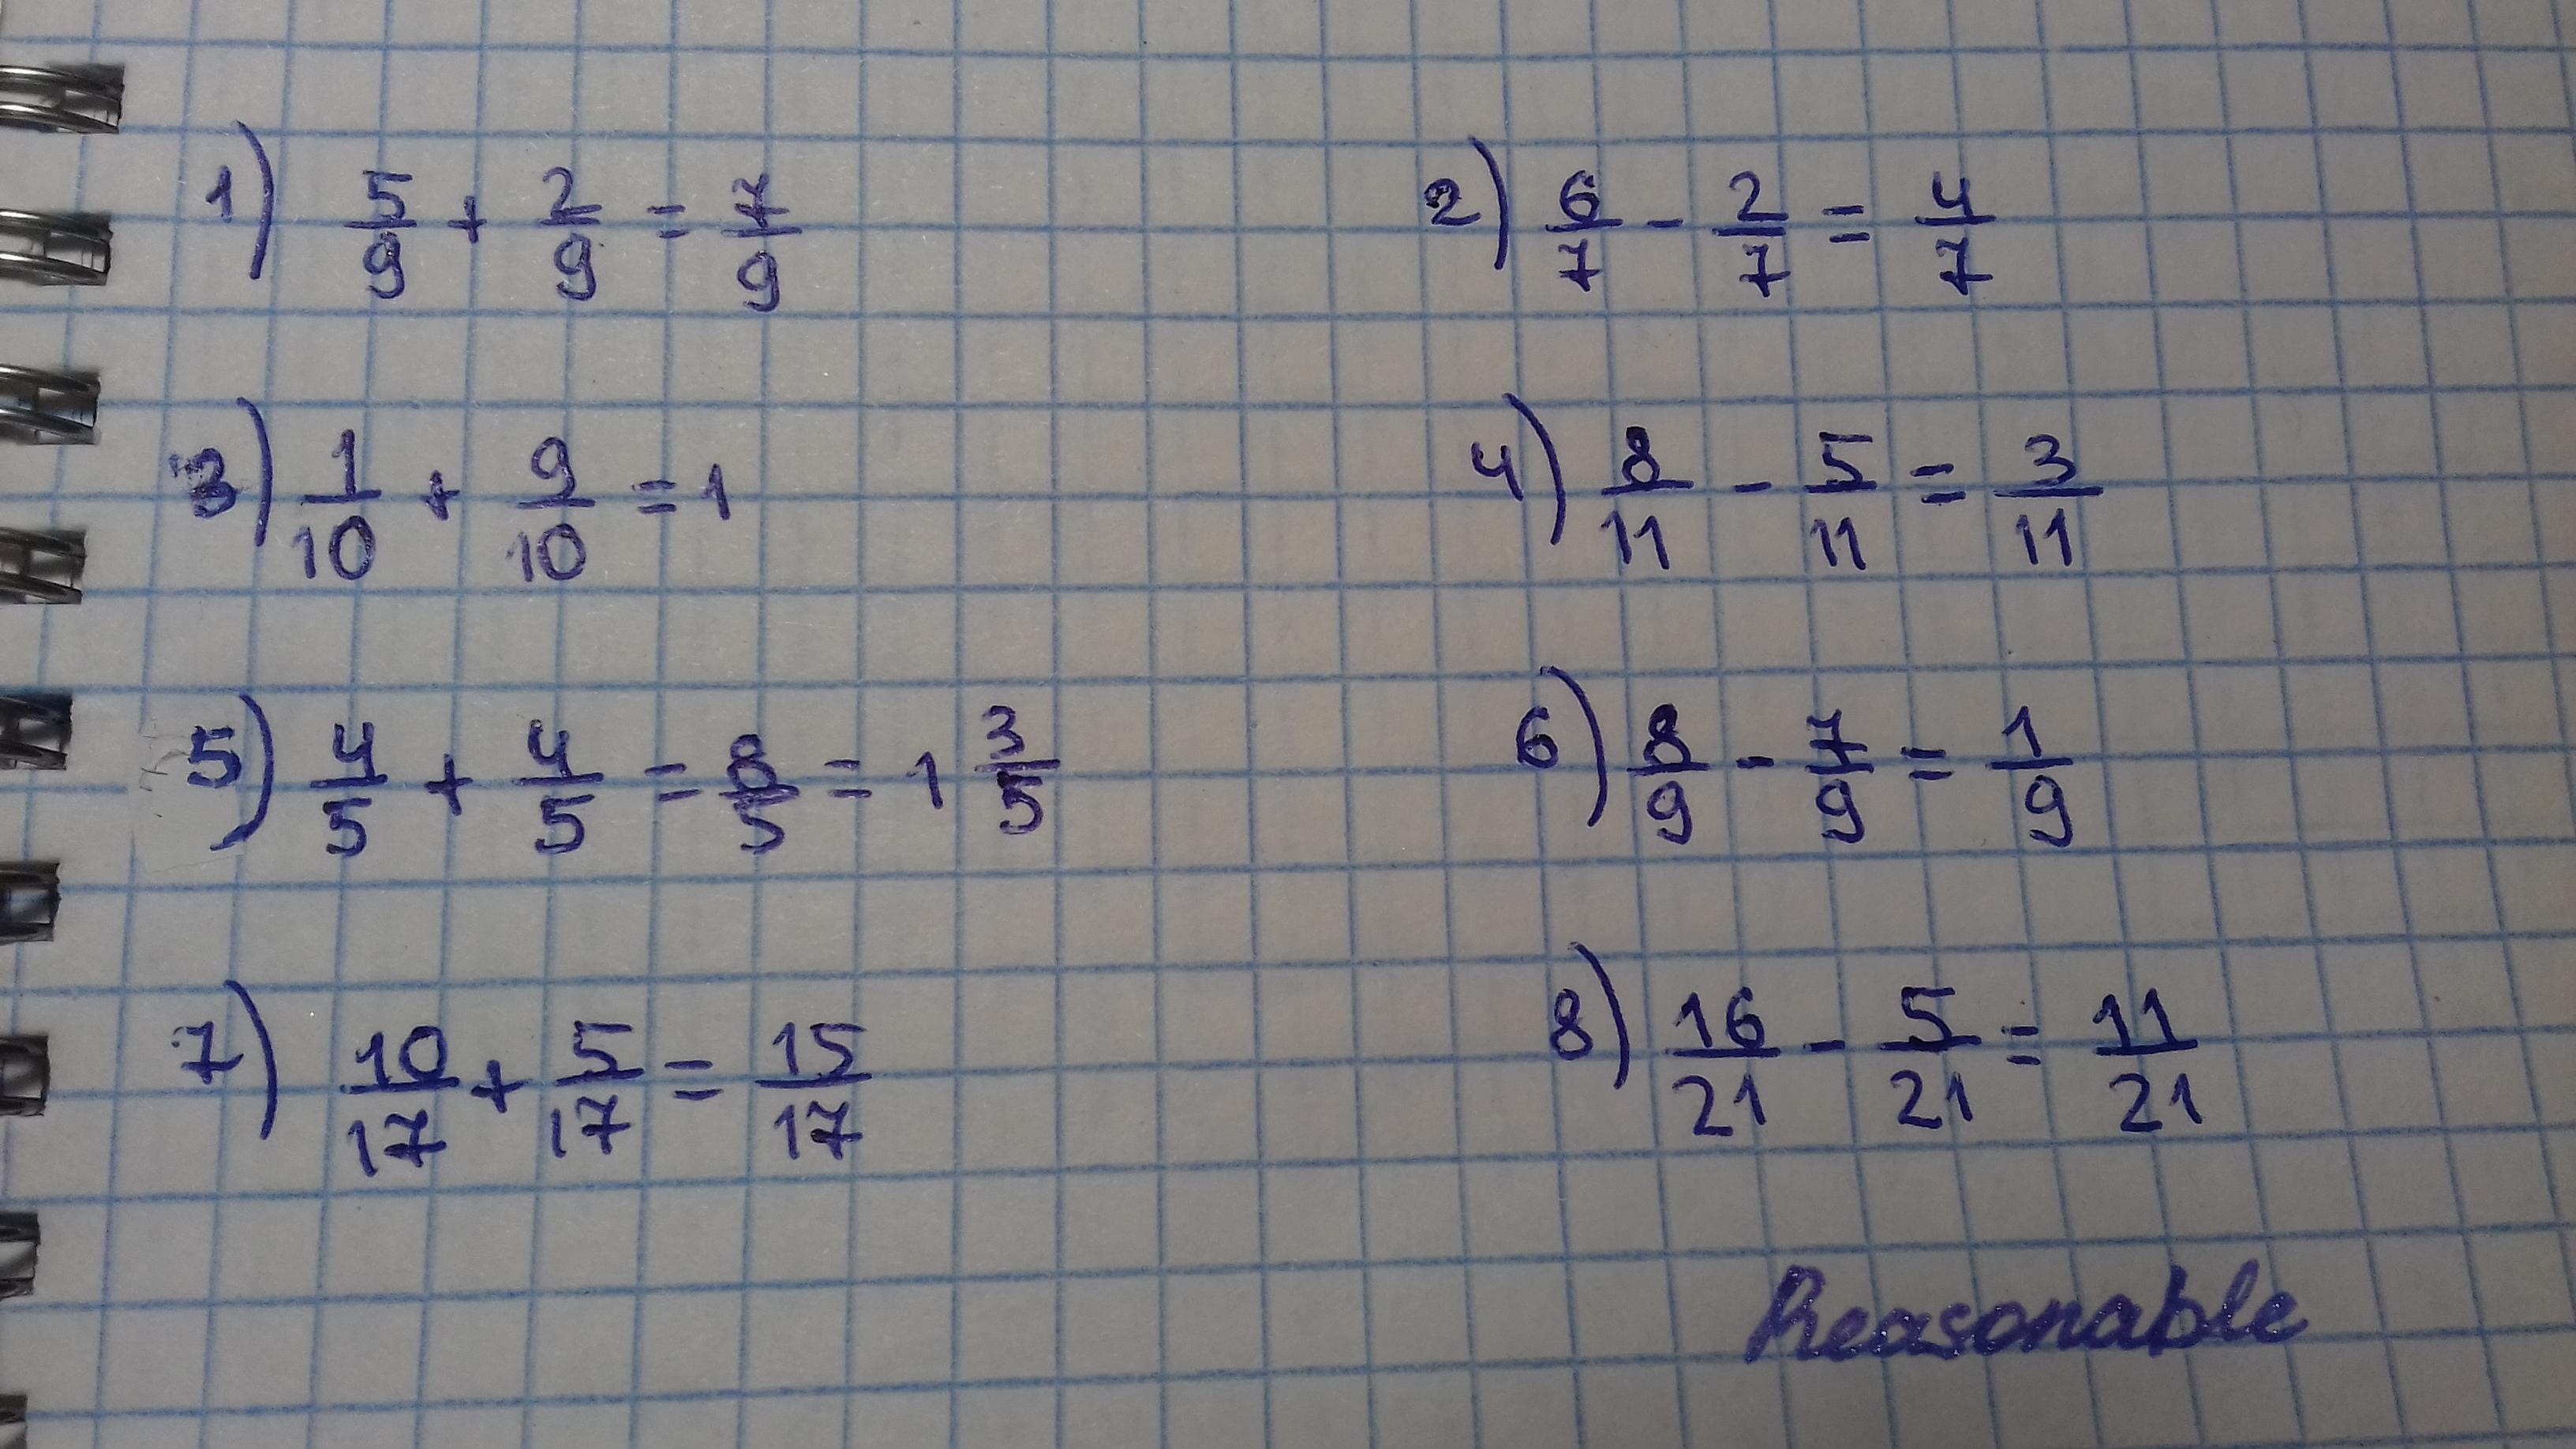 1) 5/9 + 2/9 = 7/9
2) 6/7 - 2/7 = 4/7
3) 1/10 + 9/10 = 1
4) 8/11 - 5/11 = 3/11
5) 4/5 + 4/5 = 8/5 = 1 3/5
6) 8/9 - 7/9 = 1/9
7) 10/17 + 5/17 = 15/17
8) 16/21 - 5/21 = 11/21
Reasonable